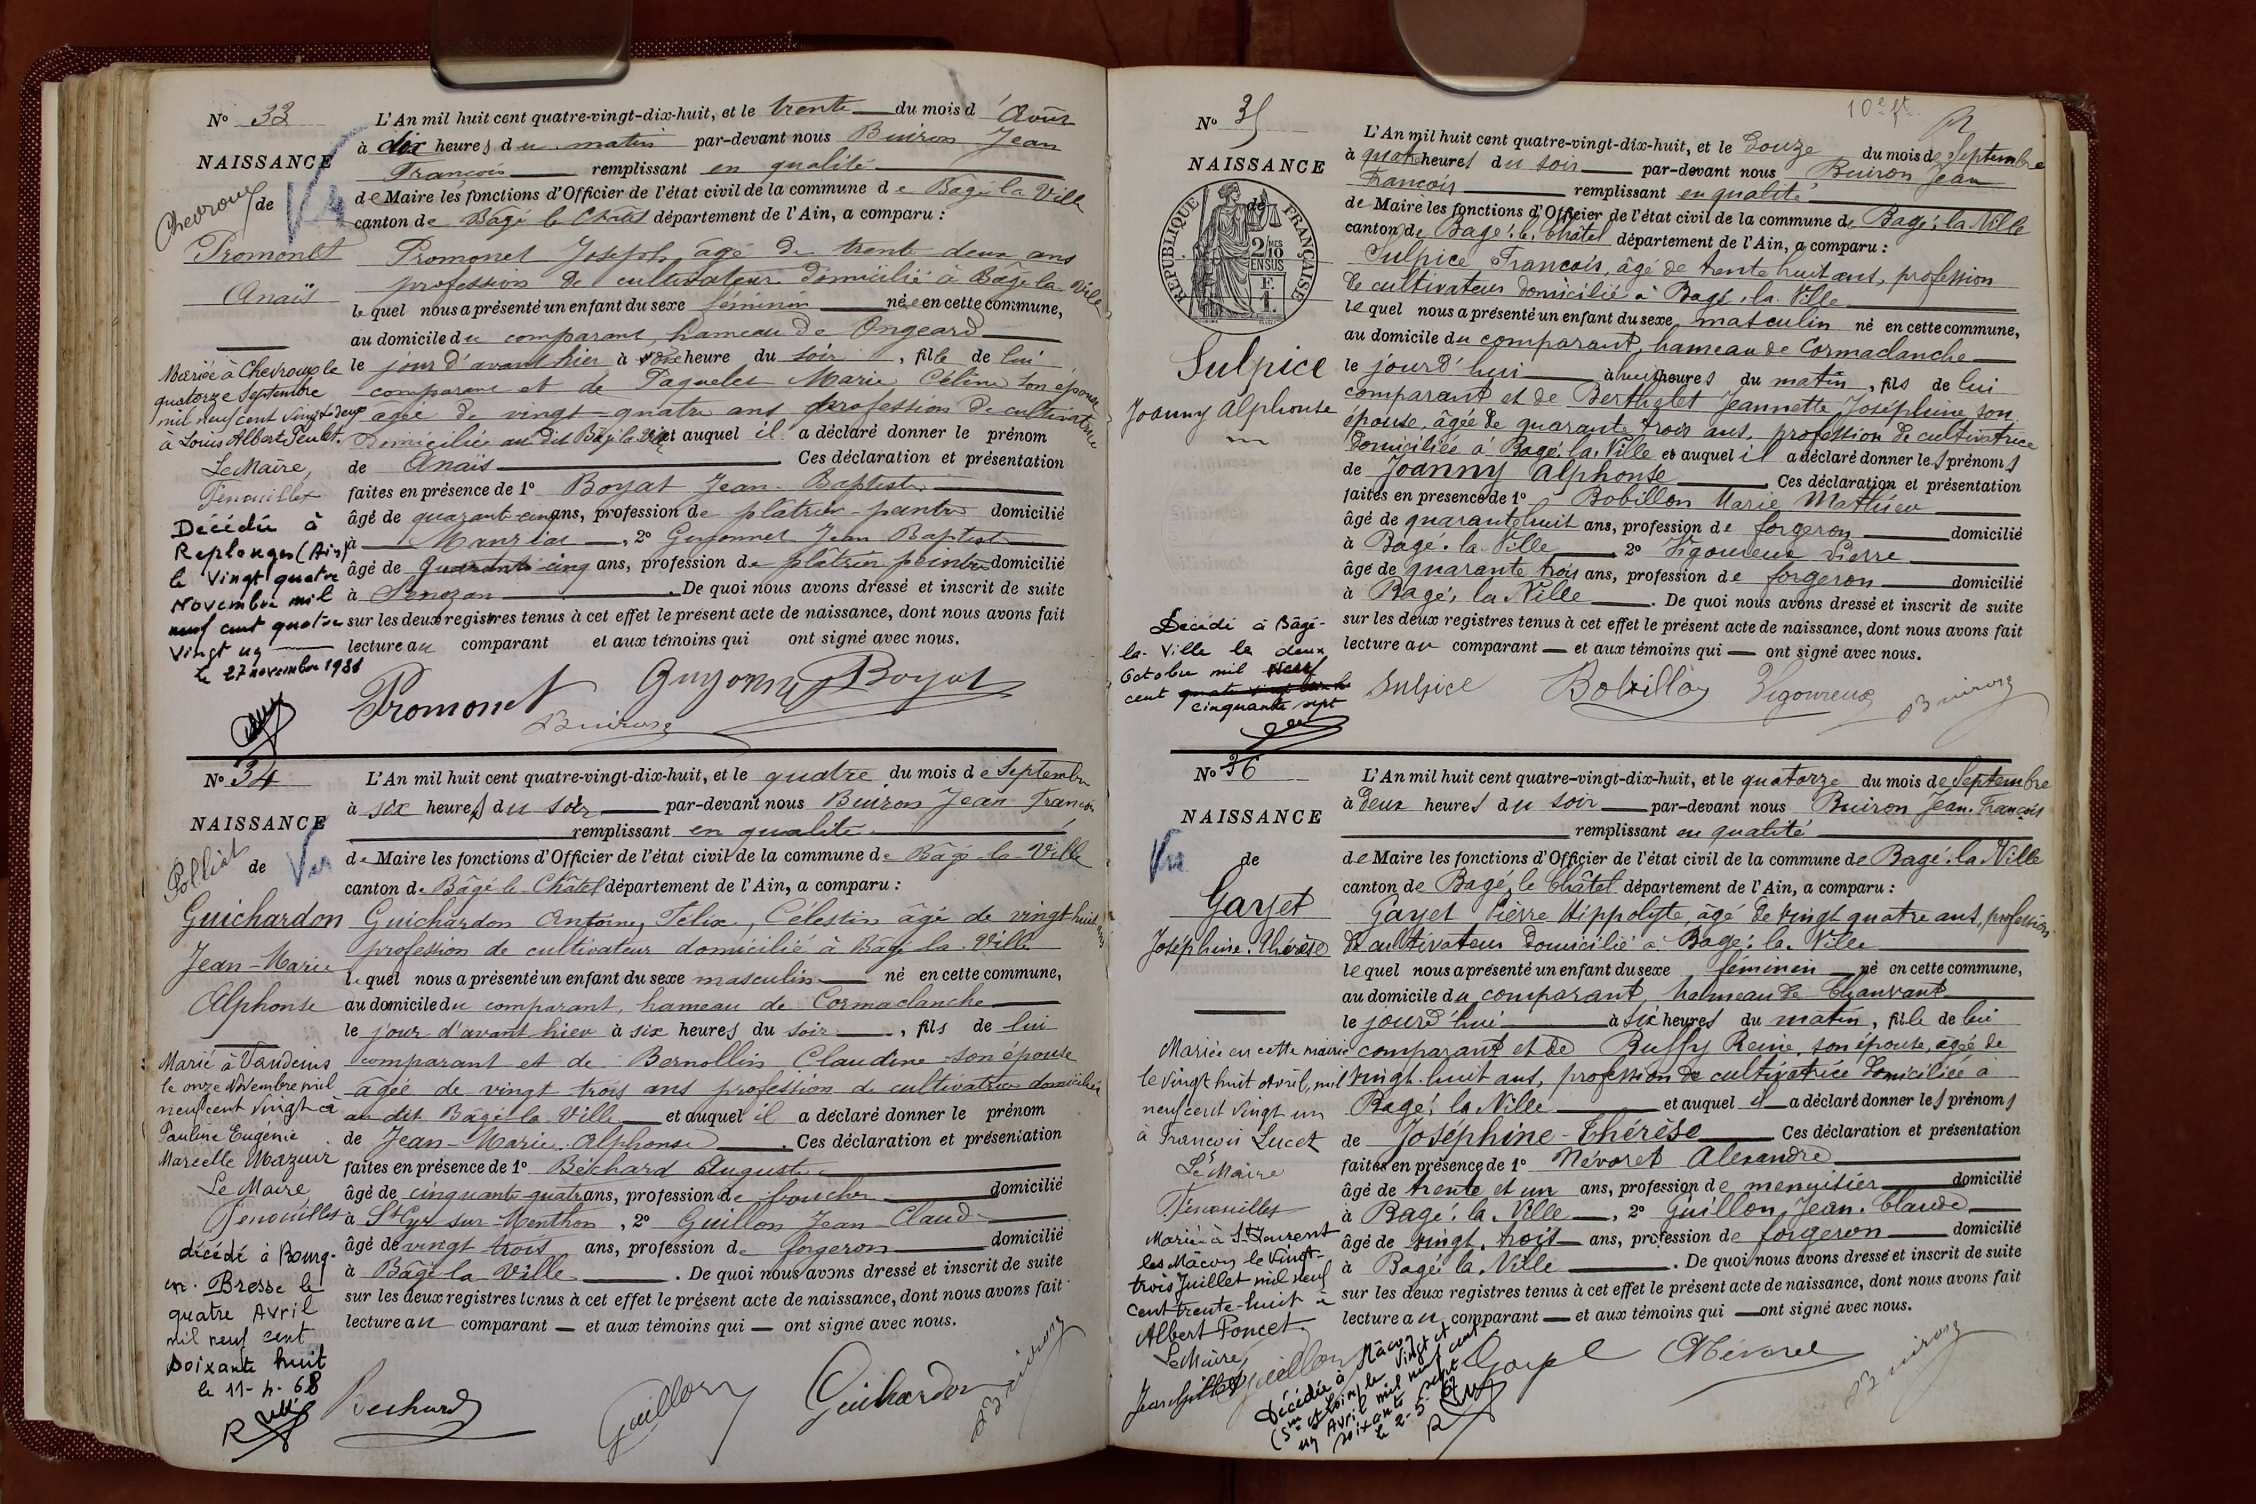 N° 33
NAISSANCE
de
Chevroux
Promonet
Anaïs
Mariée à Chevroux le
quatorze Septembre
mil neuf cent vingt deux
à Louis Albert Feulet.
Le Maire,
Fenouillet
Décédée à
Replonges (Ain)
le vingt quatre
Novembre mil
neuf cent quatre
vingt un
le 27 novembre 1981
L'An mil huit cent quatre-vingt-dix-huit, et le trente du mois d'Août
à dix heures du matin par-devant nous Buiron Jean
François remplissant en qualité
de Maire les fonctions d'Officier de l'état civil de la commune de Bâgé la Ville
canton de Bâgé le Châtel département de l'Ain, a comparu :
Promonet Joseph âgé de trente deux ans
profession de cultivateur domicilié à Bâgé la Ville
lequel nous a présenté un enfant du sexe féminin née en cette commune,
au domicile du comparant, hameau de Ongeard
le jour d'avant hier à heure du soir, fille de lui
comparant et de Paquelet Marie Céline son épouse
âgée de vingt-quatre ans profession de cultivatrice
domiciliée au dit Bâgé la Ville et auquel il a déclaré donner le prénom
de Anaïs Ces déclaration et présentation
faites en présence de 1° Boyat Jean-Baptiste
âgé de quarante cinq ans, profession de plâtrier-peintre domicilié
à Manziat, 2° Guyonnet Jean Baptiste
âgé de quarante cinq ans, profession de plâtrier peintre domicilié
à Senozan. De quoi nous avons dressé et inscrit de suite
sur les deux registres tenus à cet effet le présent acte de naissance, dont nous avons fait
lecture au comparant et aux témoins qui ont signé avec nous.
Promonet Guyonnet Boyat
Buiron
N° 34
NAISSANCE
de
Polliat
Guichardon
Jean-Marie
Alphonse
Marié à Vandeins
le onze Novembre mil
neuf cent vingt à
Pauline Eugénie
Marcelle Mazuir
Le Maire,
Fenouillet
décédé à Bourg-
en-Bresse le
quatre Avril
mil neuf cent
soixante huit
le 11-4-68
L'An mil huit cent quatre-vingt-dix-huit, et le quatre du mois de Septembre
à six heures du soir par-devant nous Buiron Jean François
remplissant en qualité
de Maire les fonctions d'Officier de l'état civil de la commune de Bâgé la Ville
canton de Bâgé le Châtel département de l'Ain, a comparu :
Guichardon Antoine, Félix, Célestin âgé de vingt huit ans
profession de cultivateur domicilié à Bâgé la Ville
lequel nous a présenté un enfant du sexe masculin né en cette commune,
au domicile du comparant, hameau de Cormaclanche
le jour d'avant hier à six heures du soir, fils de lui
comparant et de Bernollin Claudine son épouse
âgée de vingt trois ans profession de cultivatrice domiciliée
au dit Bâgé la Ville et auquel il a déclaré donner le prénom
de Jean-Marie-Alphonse. Ces déclaration et présentation
faites en présence de 1° Béchard Auguste
âgé de cinquante-quatre ans, profession de boucher domicilié
à St Cyr sur Menthon, 2° Guillon Jean-Claude
âgé de vingt trois ans, profession de forgeron domicilié
à Bâgé la Ville. De quoi nous avons dressé et inscrit de suite
sur les deux registres tenus à cet effet le présent acte de naissance, dont nous avons fait
lecture au comparant et aux témoins qui ont signé avec nous.
Bechard Guillon Guichardon Buiron
10e ft
N° 35
NAISSANCE
de
RÉPUBLIQUE FRANÇAISE
2/10 EN SUS
Sulpice
Joanny Alphonse
Décédé à Bâgé-
la-Ville le deux
Octobre mil neuf
cent
cinquante sept
L'An mil huit cent quatre-vingt-dix-huit, et le douze du mois de Septembre
à quatre heures du soir par-devant nous Buiron Jean
François remplissant en qualité
de Maire les fonctions d'Officier de l'état civil de la commune de Bagé-la-Ville
canton de Bagé-le-Châtel département de l'Ain, a comparu :
Sulpice François, âgé de trente huit ans, profession
de cultivateur domicilié à Bagé-la-Ville
lequel nous a présenté un enfant du sexe masculin né en cette commune,
au domicile du comparant, hameau de Cormaclanche
le jourd'hui à huit heures du matin, fils de lui
comparant et de Berthelet Jeannette Joséphine son
épouse, âgée de quarante trois ans, profession de cultivatrice
domiciliée à Bagé-la-Ville et auquel il a déclaré donner les prénoms
de Joanny Alphonse. Ces déclaration et présentation
faites en présence de 1° Bobillon Marie Mathieu
âgé de quarante huit ans, profession de forgeron domicilié
à Bagé-la-Ville 2° Vigoureux Pierre
âgé de quarante trois ans, profession de forgeron domicilié
à Bagé-la-Ville. De quoi nous avons dressé et inscrit de suite
sur les deux registres tenus à cet effet le présent acte de naissance, dont nous avons fait
lecture au comparant et aux témoins qui ont signé avec nous.
Sulpice Bobillon Vigoureux Buiron
N° 36
NAISSANCE
de
Gayet
Joséphine-Thérèse
Mariée en cette mairie
le vingt huit Avril, mil
neuf cent vingt un
à François Lucet
Le Maire
Fenouillet
Mariée à St Laurent
les Mâcon le vingt-
trois Juillet mil neuf
cent trente-huit à
Albert Poncet
Le Maire,
Décédée à Mâcon
(Sne et Loire) le vingt et
un Avril mil neuf cent
soixante sept
le 2-5-67
L'An mil huit cent quatre-vingt-dix-huit, et le quatorze du mois de Septembre
à deux heures du soir par-devant nous Buiron Jean-François
remplissant en qualité
de Maire les fonctions d'Officier de l'état civil de la commune de Bagé-la-Ville
canton de Bagé-le-Châtel département de l'Ain, a comparu :
Gayet Pierre Hippolyte, âgé de vingt quatre ans, profession
de cultivateur domicilié à Bagé-la-Ville
lequel nous a présenté un enfant du sexe féminin né en cette commune,
au domicile du comparant, hameau de Chanvant
le jourd'hui à six heures du matin, fille de lui
comparant et de Buffy Reine, son épouse, âgée de
vingt-huit ans, profession de cultivatrice domiciliée à
Bagé-la-Ville et auquel il a déclaré donner les prénoms
de Joséphine-Thérèse Ces déclaration et présentation
faites en présence de 1° Névoret Alexandre
âgé de trente et un ans, profession de menuisier domicilié
à Bagé-la-Ville, 2° Guillon Jean-Claude
âgé de vingt-trois ans, profession de forgeron domicilié
à Bagé-la-Ville. De quoi nous avons dressé et inscrit de suite
sur les deux registres tenus à cet effet le présent acte de naissance, dont nous avons fait
lecture au comparant et aux témoins qui ont signé avec nous.
Guillon Gayet Névoret Buiron